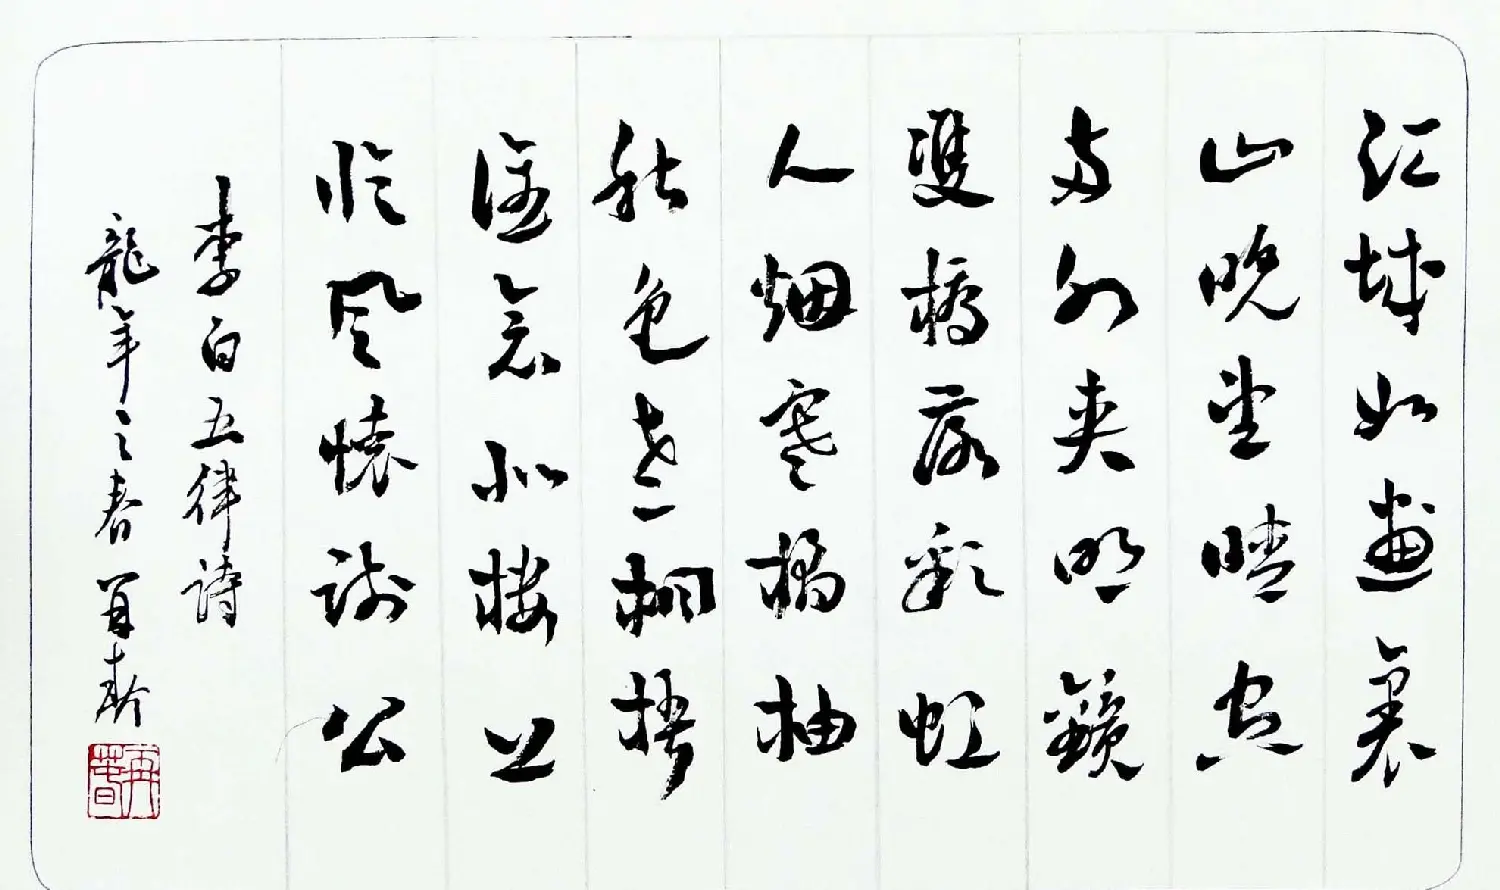 江城如畫裏
山晚望晴空
兩水夾明鏡
雙橋落彩虹
人烟寒橘柚
秋色老桐梧
誰念北樓上
臨風懷謝公
李白五律詩
龍年之春